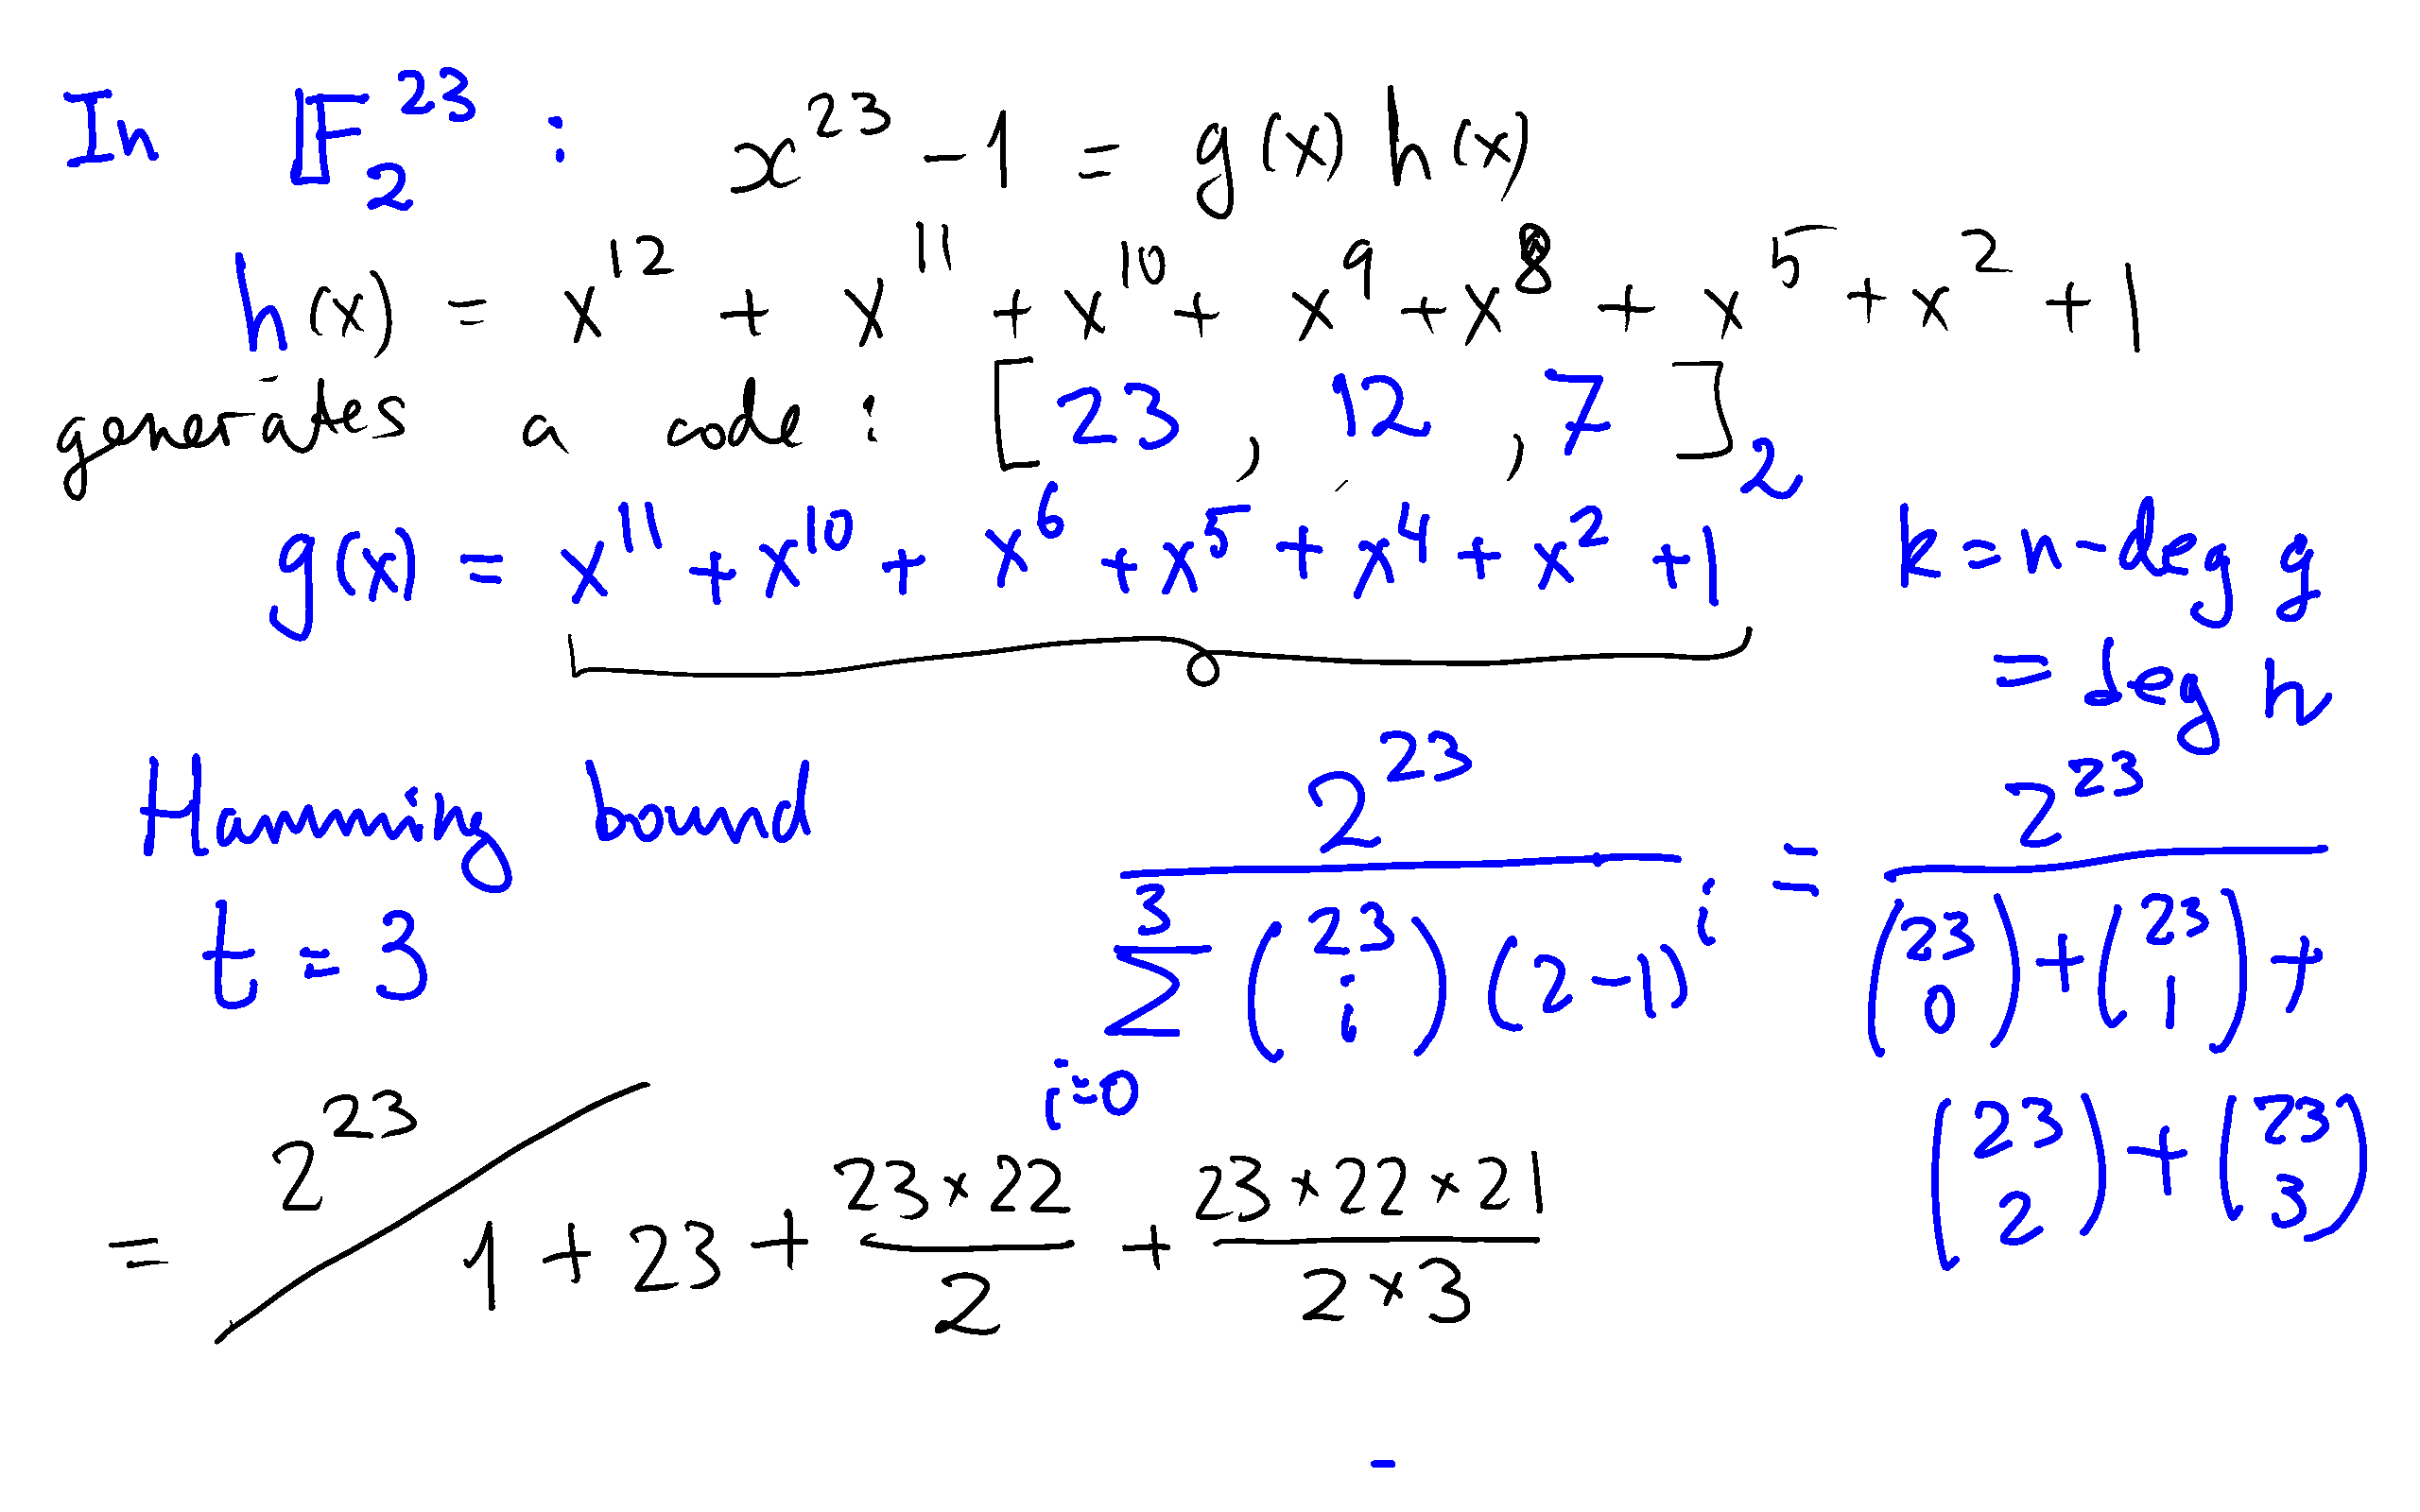 In 𝔽₂²³ : x²³ - 1 = g(x) h(x)
h(x) = x¹² + x¹¹ + x¹⁰ + x⁹ + x⁸ + x⁵ + x² + 1
generates a code : [23, 12, 7]₂
g(x) = x¹¹ + x¹⁰ + x⁶ + x⁵ + x⁴ + x² + 1
k = n - deg g
= deg h
Hamming bound
t = 3
2²³ / ∑_{i=0}^{3} (23 i) (2-1)^i = 2²³ / (23 0) + (23 1) +
(23 2) + (23 3)
= 2²³ / 1 + 23 + 23×22 / 2 + 23×22×21 / 2×3